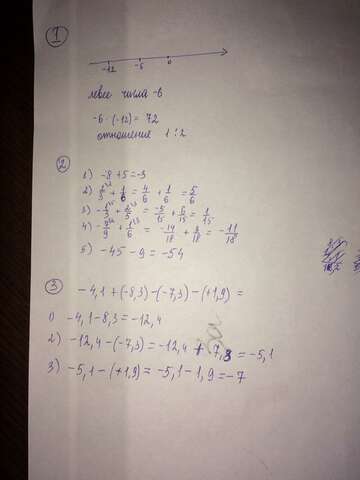 1
-12 -6 0
левее числа -6
-6 · (-12) = 72
отношение 1 : 2
2
1) -8+5=-3
2) 2/3 + 1/6 = 4/6 + 1/6 = 5/6
3) -1/3 + 2/5 = -5/15 + 6/15 = 1/15
4) -7/9 + 1/6 = -14/18 + 3/18 = -11/18
5) -45 - 9 = -54
3
-4,1 + (-8,3) - (-7,3) - (+1,9) =
1) -4,1-8,3=-12,4
2) -12,4 - (-7,3) = -12,4 + 7,3 = -5,1
3) -5,1 - (+1,9) = -5,1 - 1,9 = -7